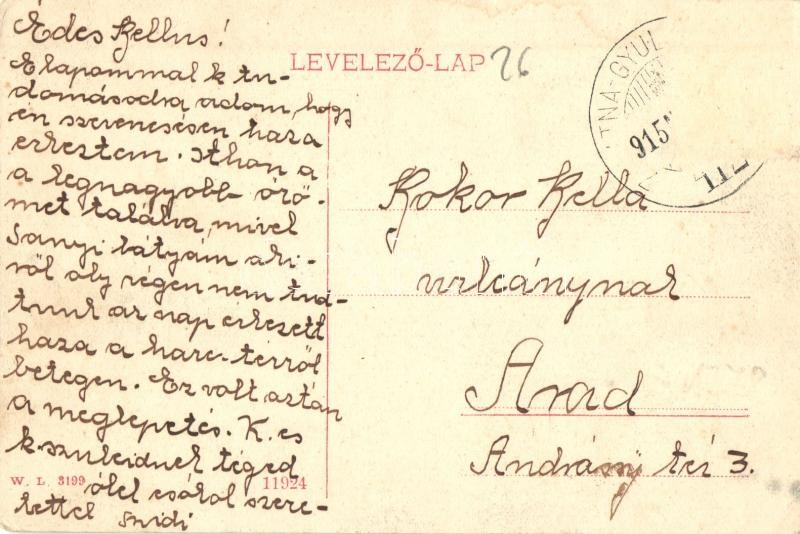 Édes Kellus!
E lapommal k tu-
domásodra adom, hogy
én szerencsésen haza
érkeztem. Ithon a
a legnagyobb örö-
met találva, mivel
Sanyi bátyám aki-
ről oly régen nem tud-
tunk az nap érkezett
haza a harc-térről
betegen. Ez volt aztán
a meglepetés. K. es
k. szüleidnek téged
ölel csókol szere-
tettel Szidi
LEVELEZŐ-LAP
26
TNA-GYUL
915
Kokor Kella
urleánynak
Arad
Andrássy tér 3.
W. L. 3199
11924